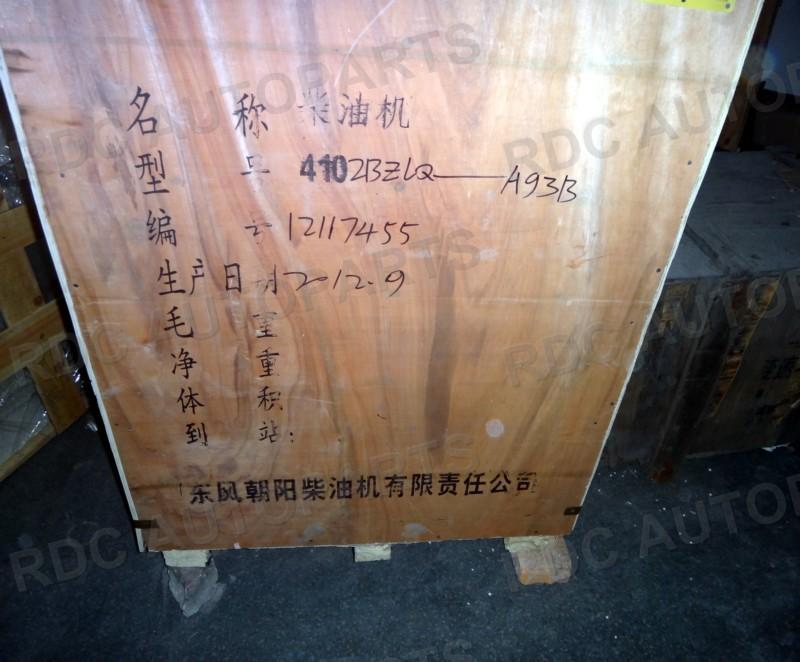 名 称 柴油机
型 号 4102BZLQ——A93B
编 号 12117455
生产日期 2012.9
毛 重
净 重
体 积
到 站:
东风朝阳柴油机有限责任公司
RDC AUTOPARTS
RDC AUTOPARTS
RDC AUTOPARTS
RDC AUTOPARTS
RDC AUTOPARTS
RDC AUTOPARTS